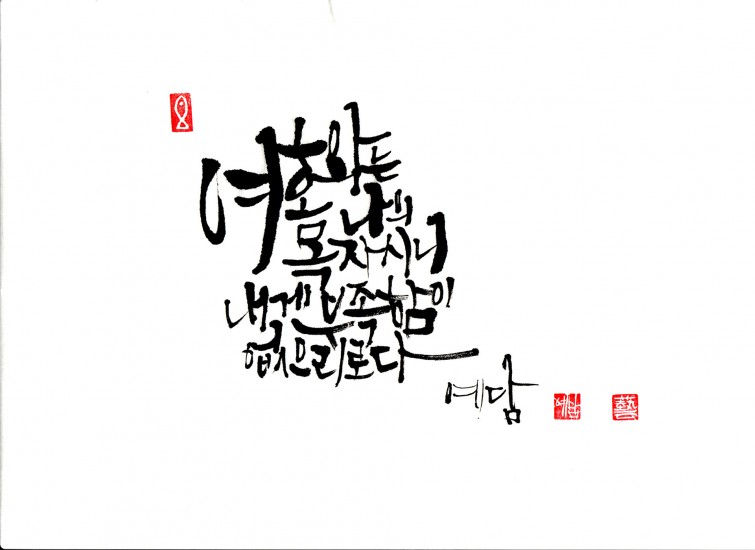 여호와는
나의
목자시니
내게 부족함이
없으리로다
예담
예담
藝